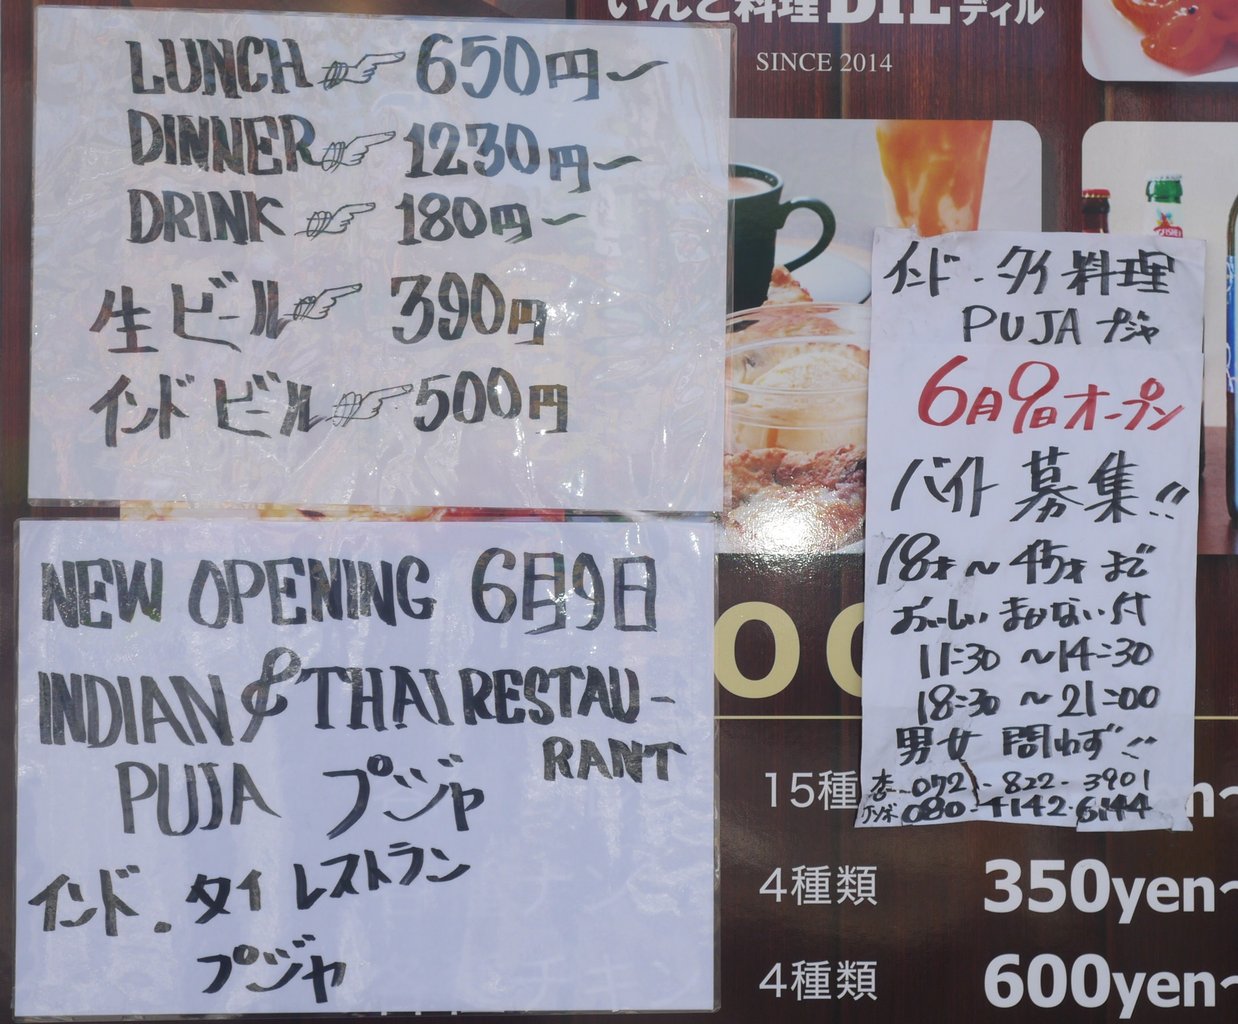 LUNCH 650円〜
DINNER 1230円〜
DRINK 180円〜
生ビール 390円
インドビール 500円
NEW OPENING 6月9日
INDIAN & THAI RESTAU-
RANT
PUJA プジャ
インド.タイ レストラン
プジャ
いんど料理DIL ディル
SINCE 2014
インド.タイ料理
PUJA プジャ
6月9日オープン
バイト募集!!
18才〜45才まで
おいしいまかない付
11:30 〜14:30
18:30 〜21:00
男女問わず!!
072-822-3901
080-4142-6144
15種
4種類 350yen〜
4種類 600yen〜